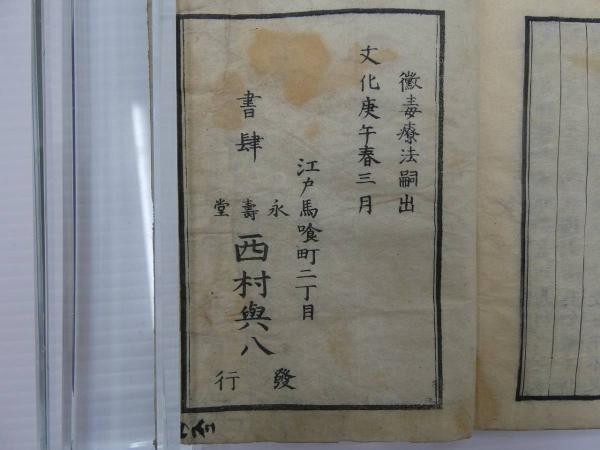 黴毒療法嗣出
文化庚午春三月
江戸馬喰町二丁目
書肆
永壽堂
西村與八
發行